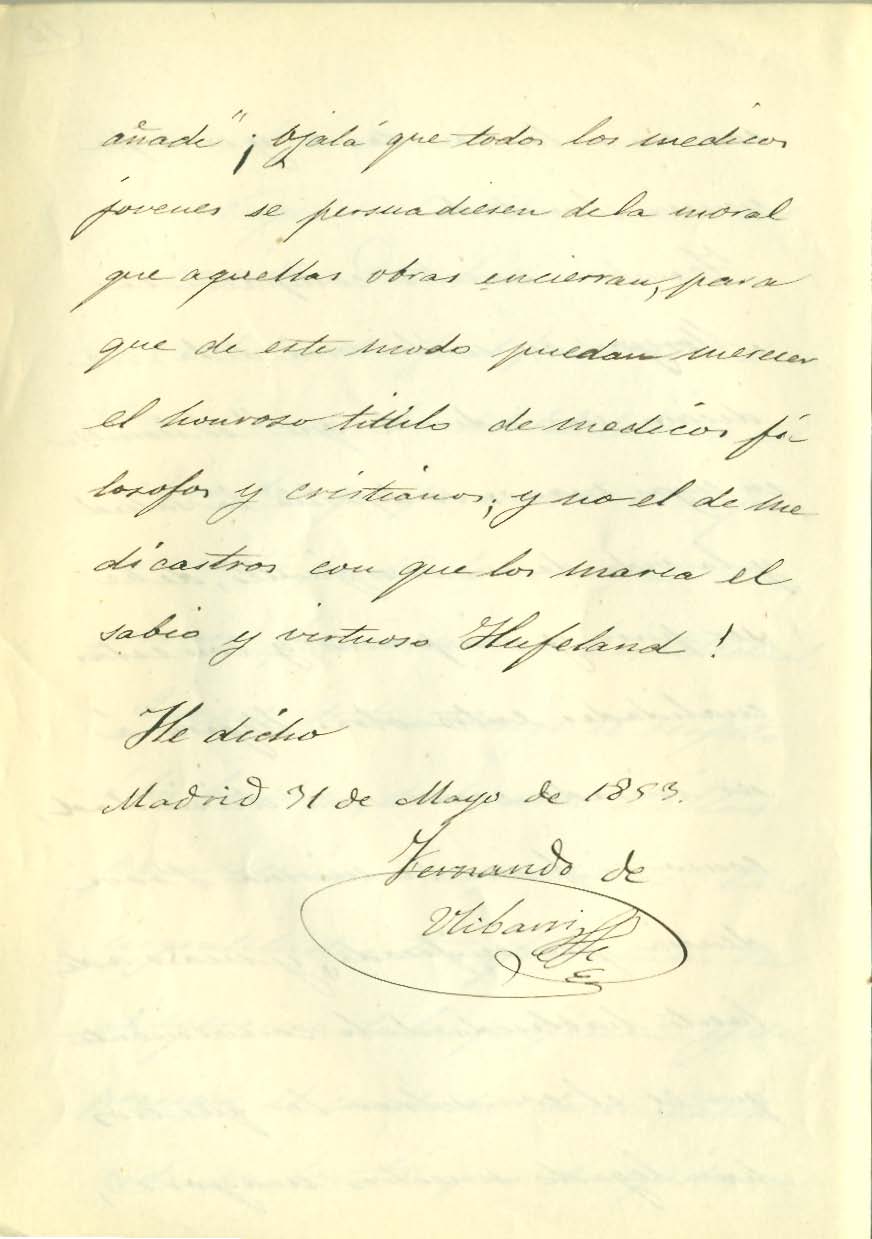 añade" ¡ Ojalá que todos los medicos
jovenes se persuadiesen de la moral
que aquellas obras encierran, para
que de este modo puedan merecer
el honroso titulo de medicos fi-
losofos y cristianos; y no el de me
dicastros con que los marca el
sabio y virtuoso Hufeland !
He dicho
Madrid 31 de Mayo de 1853.
Fernando de
Ulibarri